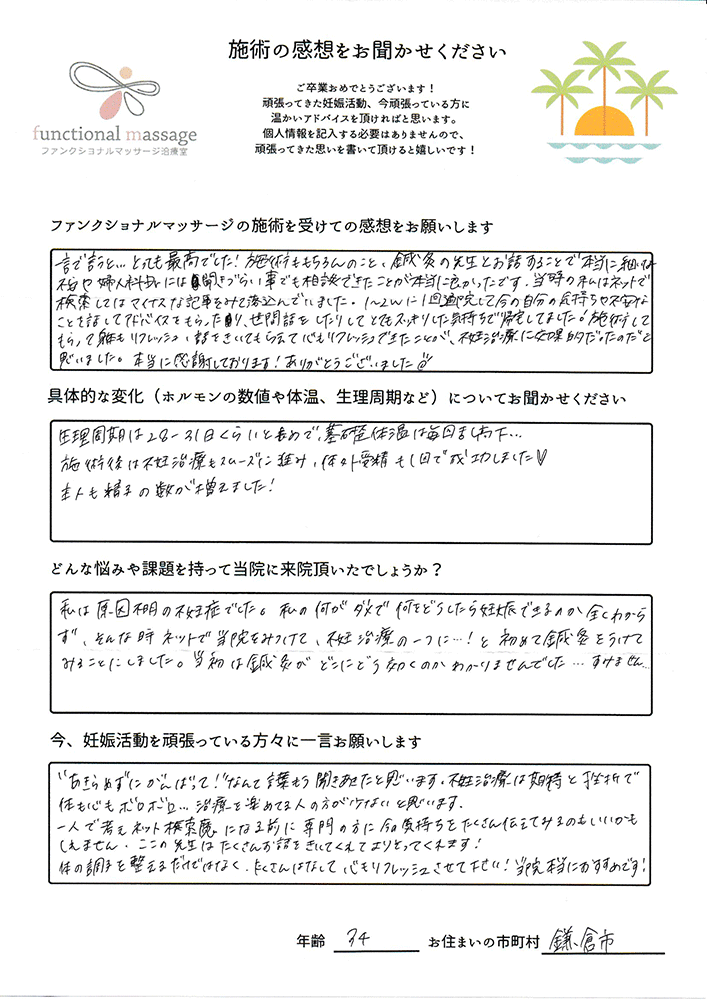 施術の感想をお聞かせください
ご卒業おめでとうございます！
頑張ってきた妊娠活動、今頑張っている方に
温かいアドバイスを頂ければと思います。
個人情報を記入する必要はありませんので、
頑張ってきた思いを書いて頂けると嬉しいです！
functional massage
ファンクショナルマッサージ治療室
ファンクショナルマッサージの施術を受けての感想をお願いします
言で言うと…とても最高でした！施術ももちろんのこと、鍼灸の先生とお話することで本当に細かな
不安や婦人科医には聞きづらい事でも相談できたことが本当に良かったです。当時の私はネットで
検索してはマイナスな記事をみて落込んでいました。1〜2wに1回通院して今の自分の気持ちや不安な
ことを話してアドバイスをもらったり、世間話をしたりしてとてもスッキリした気持ちで帰宅してました！施術して
もらって体もリフレッシュ、話をきいてもらって心もリフレッシュできたことが、不妊治療に効果的だったのだと
思いました。本当に感謝しております！ありがとうございました
具体的な変化（ホルモンの数値や体温、生理周期など）についてお聞かせください
生理周期は28-31日くらいと長めで、基礎体温は毎日まちまち…
施術後は不妊治療もスムーズに進み、体外受精も1回で成功しました♡
主人も精子の数が増えました！
どんな悩みや課題を持って当院に来院頂いたでしょうか？
私は原因不明の不妊症でした。私の何がダメで何をどうしたら妊娠できるのか全くわからず、
そんな時ネットで当院をみつけて、不妊治療の一つに…！と初めて鍼灸をうけて
みることにしました。当初は鍼灸がどこにどう効くのかわかりませんでした…すみません…
今、妊娠活動を頑張っている方々に一言お願いします
"あきらめずにがんばって！"なんて言葉もう聞きあきたと思います。不妊治療は期待と挫折で
体も心もボロボロ…治療を楽めてる人の方が少ないと思います。
一人で考えネット検索魔になる前に専門の方に今の気持ちをたくさん伝えてみるのもいいかも
しれません。ここの先生はたくさんお話をきいてくれてよりそってくれます！
体の調子を整えるだけではなく、たくさんはなして心もリフレッシュさせて下さい！当院本当におすすめです！
年齢 34 お住まいの市町村 鎌倉市